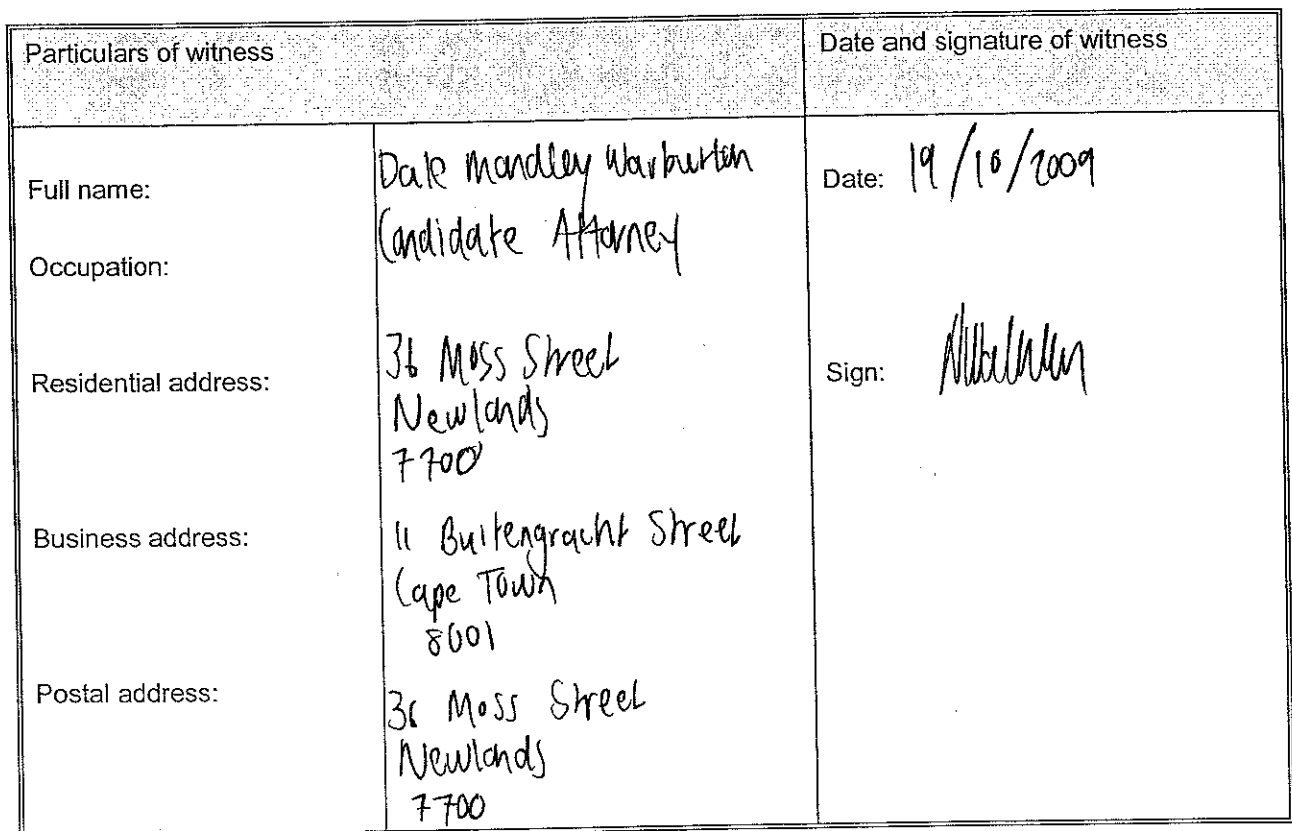 Particulars of witness
Date and signature of witness
Full name:
Dale Mandley Warburton
Date: 19/10/2009
Occupation:
Candidate Attorney
Residential address:
36 Moss Street
Newlands
7700
Sign:
Business address:
11 Buitengracht Street
Cape Town
8001
Postal address:
36 Moss Street
Newlands
7700